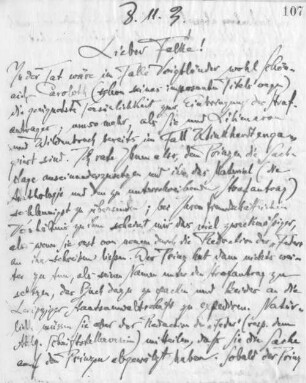 107
8. 11. 3
Lieber Falke!
In der Tat wäre im Falle Voigtländer wohl Schön-
aich-Carolath (schon seines imposanten Titels wegen)
die geeignetste Persönlichkeit zur Einbringung des Straf-
antrages, umso mehr, als Sie und Liliencron
und Wildenbruch bereits im Fall Klinkhardt engagiert
sind. Ich rate Ihnen also, dem Prinzen die Sach-
lage auseinanderzusetzen und ihm das Material (die
Anthologie und den zu unterschreibenden Strafantrag)
schleunigst zu übersenden; bei Ihrem freundschaftlichen
Verhältnis zu ihm scheint mir das viel zweckmäßiger,
als wenn Sie erst von neuem durch die Redaktion der "Feder"
an ihn schreiben ließen. Der Prinz hat dann nichts weiter
zu tun, als seinen Namen unter den Strafantrag zu
setzen, das Buch dazu zu packen und beides an die
Leipziger Staatsanwaltschaft zu expedieren. Natür-
lich müssen Sie aber der Redaktion der "Feder" (resp. dem
Allg. Schriftstellerverein) mitteilen, daß Sie die Sache
auf den Prinzen abgewälzt haben. Sobald der Prinz